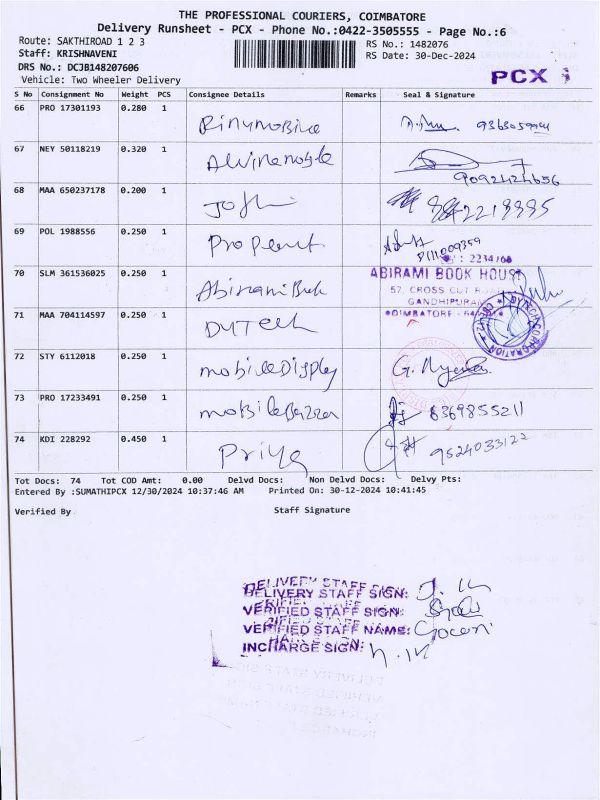 THE PROFESSIONAL COURIERS, COIMBATORE
Delivery Runsheet - PCX - Phone No.:0422-3505555 - Page No.:6
Route: SAKTHIROAD 1 2 3
RS No.: 1482076
Staff: KRISHNAVENI
RS Date: 30-Dec-2024
DRS No.: DCJB148207606
Vehicle: Two Wheeler Delivery
PCX
S No Consignment No Weight PCS Consignee Details Remarks Seal & Signature
66 PRO 17301193 0.280 1
67 NEY 50118219 0.320 1
9092424656
68 MAA 650237178 0.200 1 8842218995
69 POL 1988556 0.250 1
: 2234
70 SLM 361536025 0.250 1 Abirami Book
ABIRAMI BOOK HOUSE
57, CROSS CUT
GANDHIPURAM
COIMBATORE
71 MAA 704114597 0.250 1 DVTech
CORPORATION
72 STY 6112018 0.250 1 mobileDisplay
73 PRO 17233491 0.250 1 8369855211
74 KDI 228292 0.450 1 Priya 9524033122
Tot Docs: 74 Tot COD Amt: 0.00 Delvd Docs: Non Delvd Docs: Delvy Pts:
Entered By :SUMATHIPCX 12/30/2024 10:37:46 AM Printed On: 30-12-2024 10:41:45
Verified By Staff Signature
DELIVERY STAFF SIGN:
VERIFIED STAFF SIGN:
VERIFIED STAFF NAME:
INCHARGE SIGN: